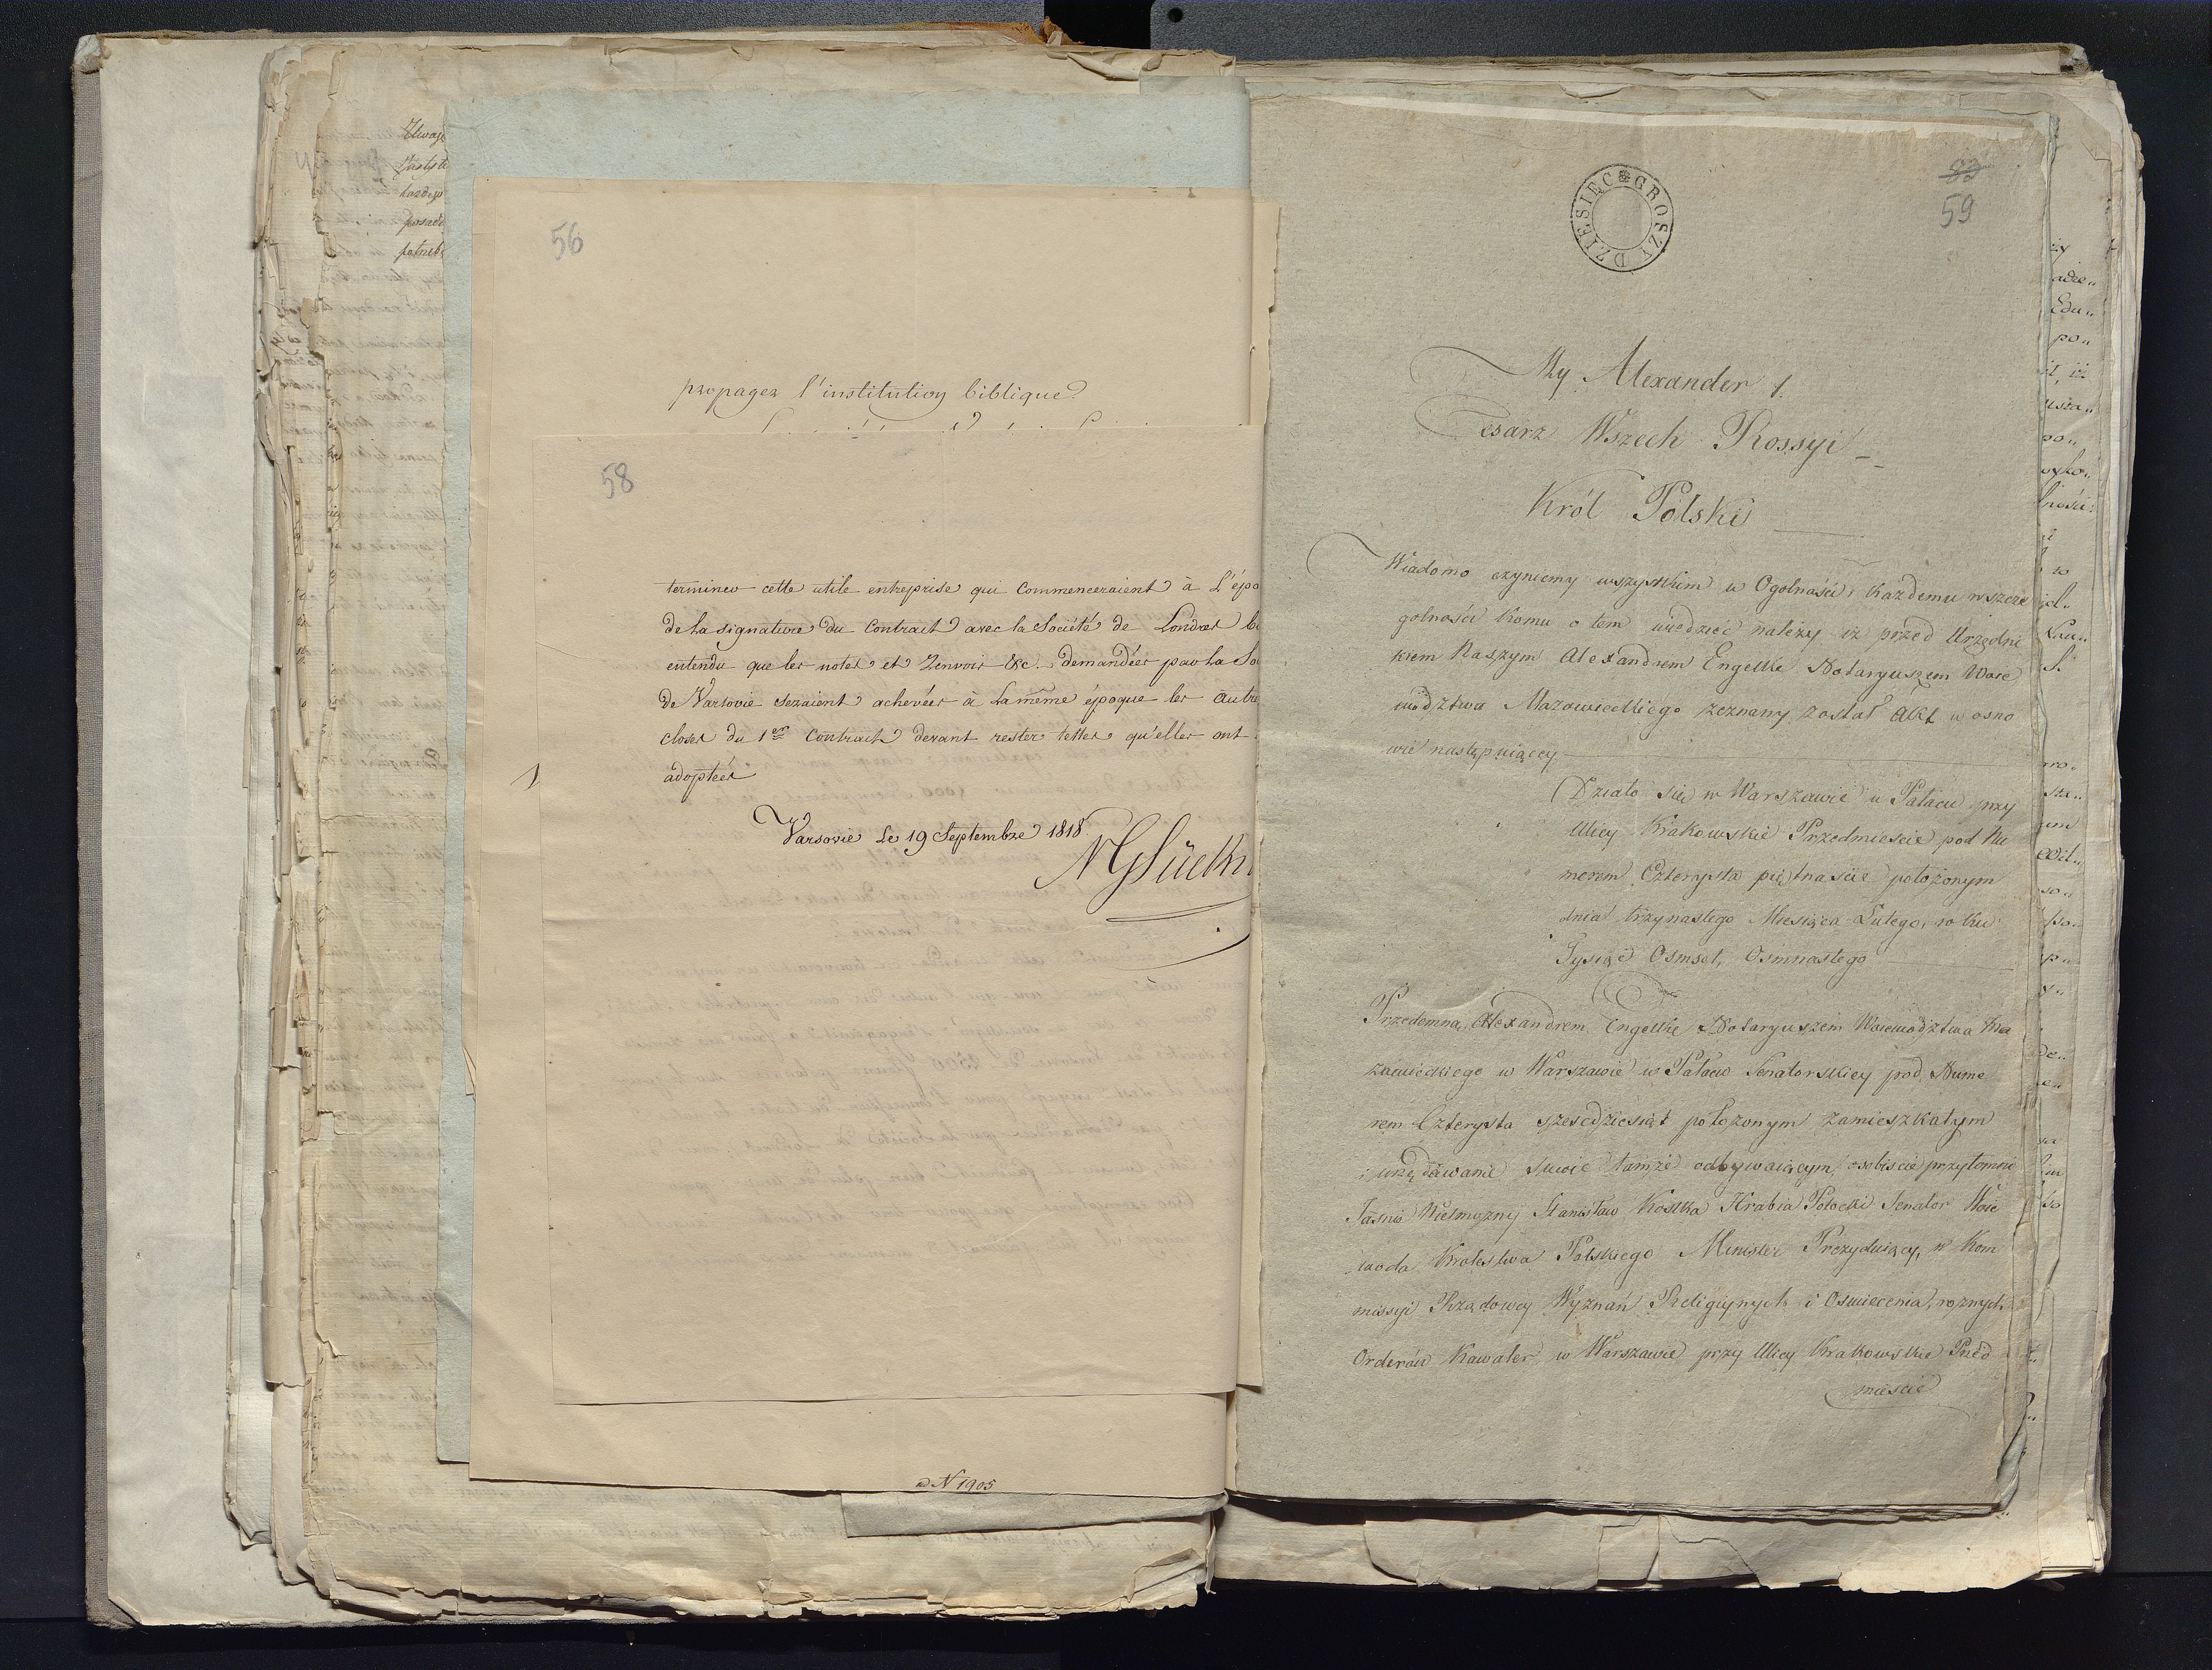 56
propager l'institution biblique
58
terminer cette utile entreprise qui commenceraient à L'épo
de la signature du Contrait avec la Société de Londres bi
entendu que les notes et Renvois &c. demandées par la So
de Varsovie seraient achevées à la même époque les autre
closes du 1er Contrait devant rester telles qu'elles ont
adoptées
Varsovie Le 19 Septembre 1818
NGlück
N 1905
DZIESIĘC GROSZY
83
59
My Alexander 1.
Cesarz Wszech Rossyi
Król Polski
Wiadomo czyniemy wszystkim w Ogolności, Każdemu w szcze
golności Komu o tem wiedzieć należy iż przed Urzędni
kiem Naszym Alexandrem Engelke Notaryuszem Woie
wództwa Mazowieckiego zeznany został Akt w osno
wie następuiącey
Działo się w Warszawie w Pałacu przy
Ulicy Krakowskie Przedmiescie pod Nu
merem Czterysta piętnaście położonym
dnia trzynastego Miesiąca Lutego, roku
Tysiąc Osmset, Osmnastego
Przedemną Alexandrem Engelke Notaryuszem Woiewództwa Ma
zowieckiego w Warszawie w Pałacu Senatorskiey pod Nume
rem Czterysta szescdziesiąt położonym zamieszkałym
i urzędowanie swoie tamże odbywaiącym, osobiscie przytomni
Jasnie Wielmożny Stanisław Kostka Hrabia Potocki Senator Woie
woda Krolestwa Polskiego Minister Prezyduiący w Kom
missyi Rządowey Wyznań Religijnych i Oswiecenia, roznych
Orderów Kawaler, w Warszawie przy Ulicy Krakowskie Przed
miescie